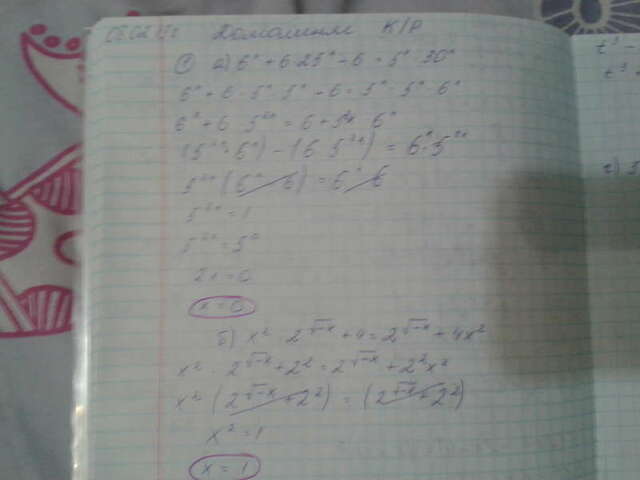 Домашняя К/Р
① а) 6ˣ + 6·25ˣ - 6 = 5ˣ·30ˣ
6ˣ + 6·5ˣ·5ˣ - 6 = 5ˣ·5ˣ·6ˣ
6ˣ + 6·5²ˣ = 6 + 5²ˣ·6ˣ
(5²ˣ·6ˣ) - (6·5²ˣ) = 6ˣ·5²ˣ
5²ˣ (6ˣ - 6) = 6ˣ - 6
5²ˣ = 1
5²ˣ = 5⁰
2x = 0
x = 0
б) x²·2^√-x + 4 = 2^√-x + 4x²
x²·2^√-x + 2² = 2^√-x + 2²x²
x² (2^√-x + 2²) = (2^√-x + 2²)
x² = 1
x = 1
t³ -
t³
г) 3